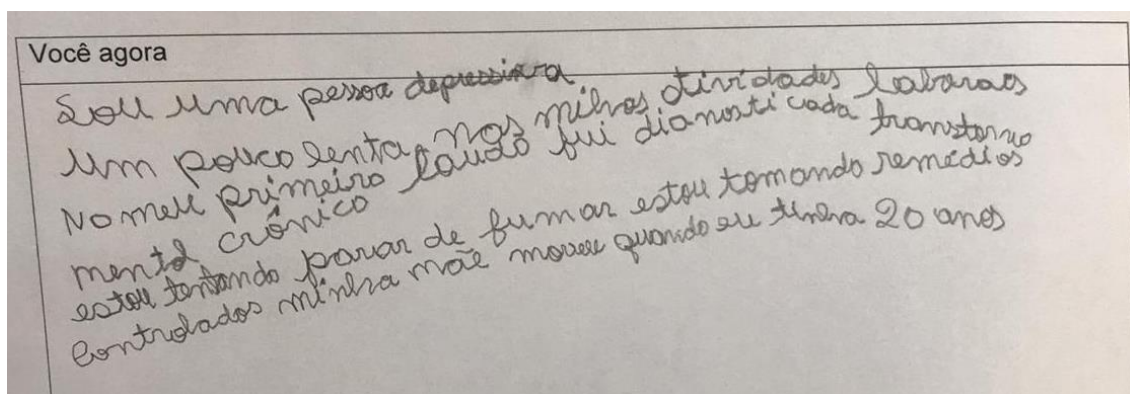 Você agora
Sou uma pessoa depressiva
um pouco lenta nas milhas atividades labarais
No meu primeiro laudo fui dianosticada transtorno
mental crônico
estou tentando parar de fumar estou tomando remédios
controlados minha mãe moueu quando eu tinha 20 anos